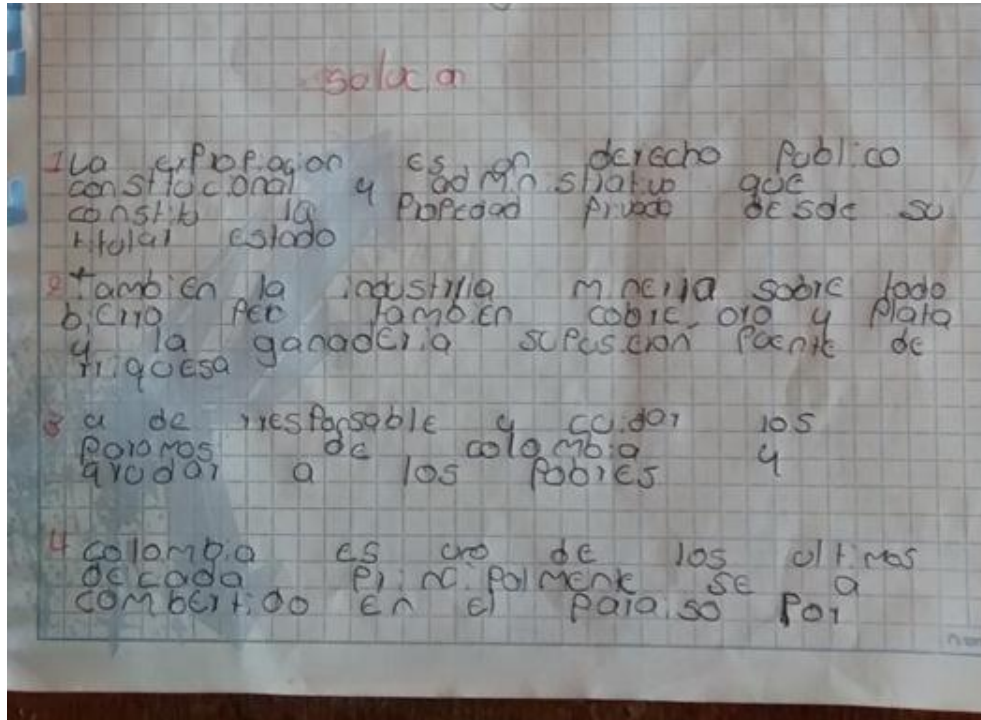 solucion
1 La expropiacion es un derecho publico
constitucional y administrativo que
constitu la propiedad privada desde su
titular estado
2 tambien la industria mineria sobre todo
hierro per tambien cobre oro y plata
y la ganaderia suposicion fuente de
rriquesa
3 a de rresponsable y cuidar los
paramos de colombia y
ayudar a los pobres
4 colombia es uno de los ultimos
decada principalmente se a
combertido en el paraiso por